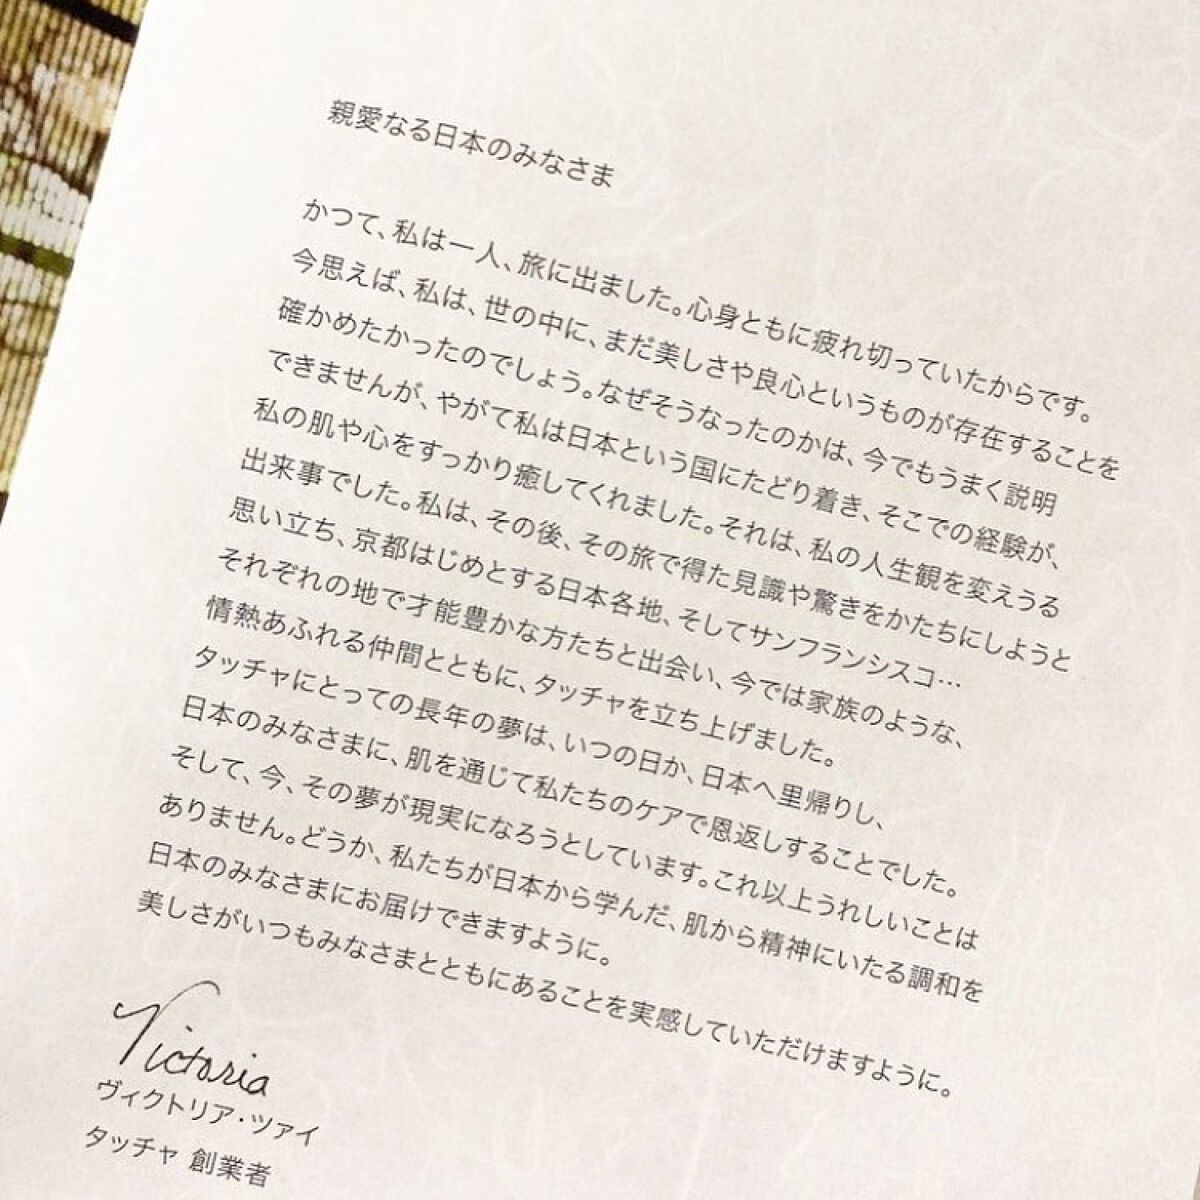 親愛なる日本のみなさま
かつて、私は一人、旅に出ました。心身ともに疲れ切っていたからです。
今思えば、私は、世の中に、まだ美しさや良心というものが存在することを
確かめたかったのでしょう。なぜそうなったのかは、今でもうまく説明
できませんが、やがて私は日本という国にたどり着き、そこでの経験が、
私の肌や心をすっかり癒してくれました。それは、私の人生観を変えうる
出来事でした。私は、その後、その旅で得た見識や驚きをかたちにしようと
思い立ち、京都はじめとする日本各地、そしてサンフランシスコ…
それぞれの地で才能豊かな方たちと出会い、今では家族のような、
情熱あふれる仲間とともに、タッチャを立ち上げました。
タッチャにとっての長年の夢は、いつの日か、日本へ里帰りし、
日本のみなさまに、肌を通じて私たちのケアで恩返しすることでした。
そして、今、その夢が現実になろうとしています。これ以上うれしいことは
ありません。どうか、私たちが日本から学んだ、肌から精神にいたる調和を
日本のみなさまにお届けできますように。
美しさがいつもみなさまとともにあることを実感していただけますように。
Victoria
ヴィクトリア・ツァイ
タッチャ 創業者